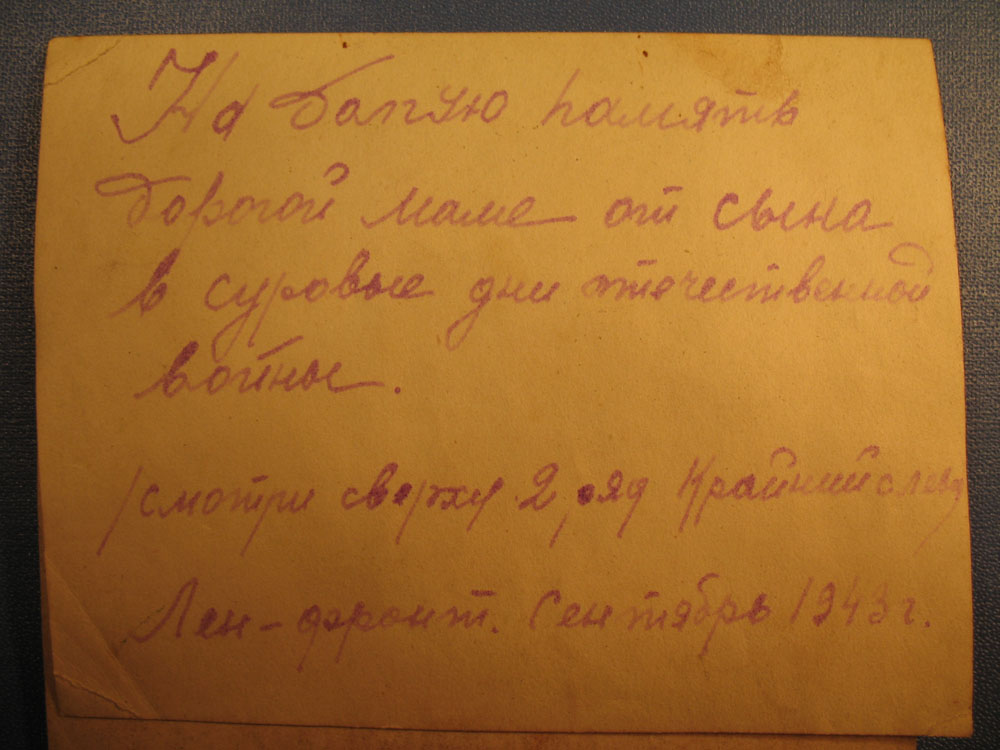 На долгую память
дорогой маме от сына
в суровые дни отечественной
войны.
/смотри сверху 2 ряд крайний слева/
Лен-фронт. Сентябрь 1943 г.